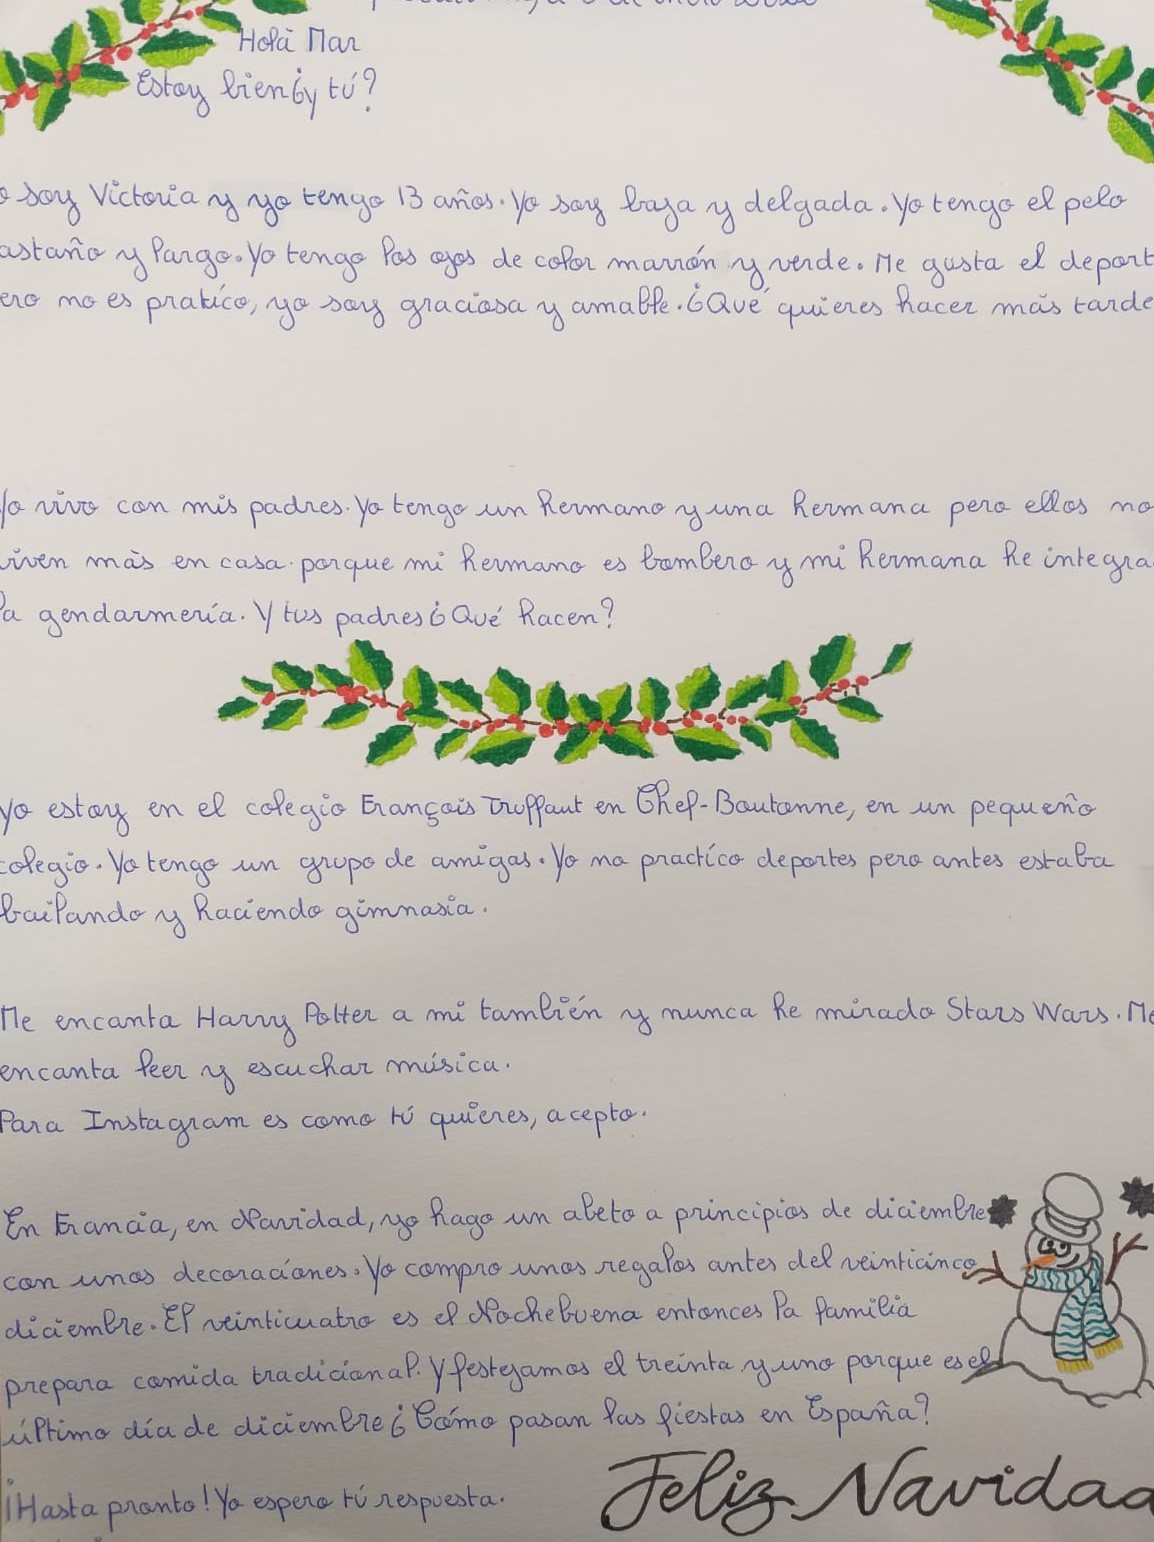 Holà Mar
Estoy bien¿y tú?
soy Victoria y yo tengo 13 años. Yo soy baja y delgada. Yo tengo el pelo
astaño y largo. Yo tengo los ojos de color marrón y verde. Me gusta el deport
ero no es pratico, yo soy graciosa y amable. ¿Qué quieres hacer más tarde
Yo vivo con mis padres. Yo tengo un hermano y una hermana pero ellos no
iven más en casa porque mi hermano es bombero y mi hermana he integra
la gendarmería. Y tus padres ¿Qué hacen?
Yo estoy en el colegio François Truffaut en Chef-Boutonne, en un pequeño
colegio. Yo tengo un grupo de amigas. Yo no practíco deportes pero antes estaba
bailando y haciendo gimnasia.
Me encanta Harry Potter a mi también y nunca he mirado Stars Wars. Me
encanta leer y escuchar música.
Para Instagram es como tú quieres, acepto.
En Francia, en Navidad, yo hago un abeto a principios de diciembre
con unos decoraciones. Yo compro unos regalos antes del veinticinco
diciembre. El veinticuatro es el Nochebuena entonces la familia
prepara comida tradicional. Y festejamos el treinta y uno porque es el
último día de diciembre ¿Cómo pasan las fiestas en España?
¡Hasta pronto! Yo espero tú respuesta.
Feliz Navidad